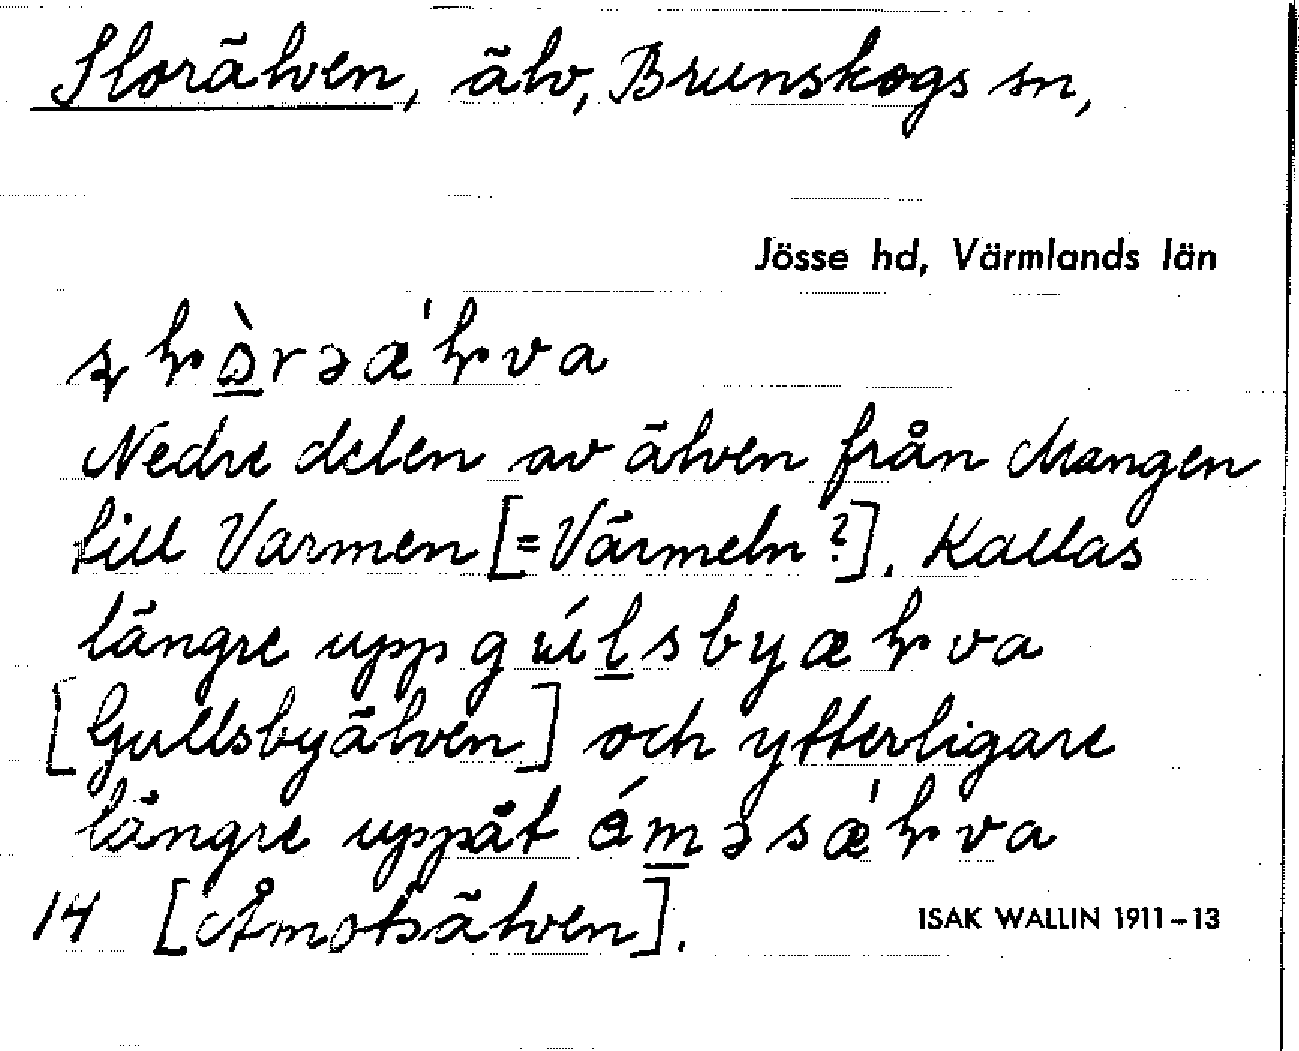 Slorälven, älv, Brunskogs sn,
Jösse hd, Värmlands län
Nedre delen av älven från Mangen
till Varmen [= Värmeln?]. Kallas
längre upp
[Gullsbyälven] och ytterligare
längre uppåt
14 [Åmotsälven].
ISAK WALLIN 1911-13